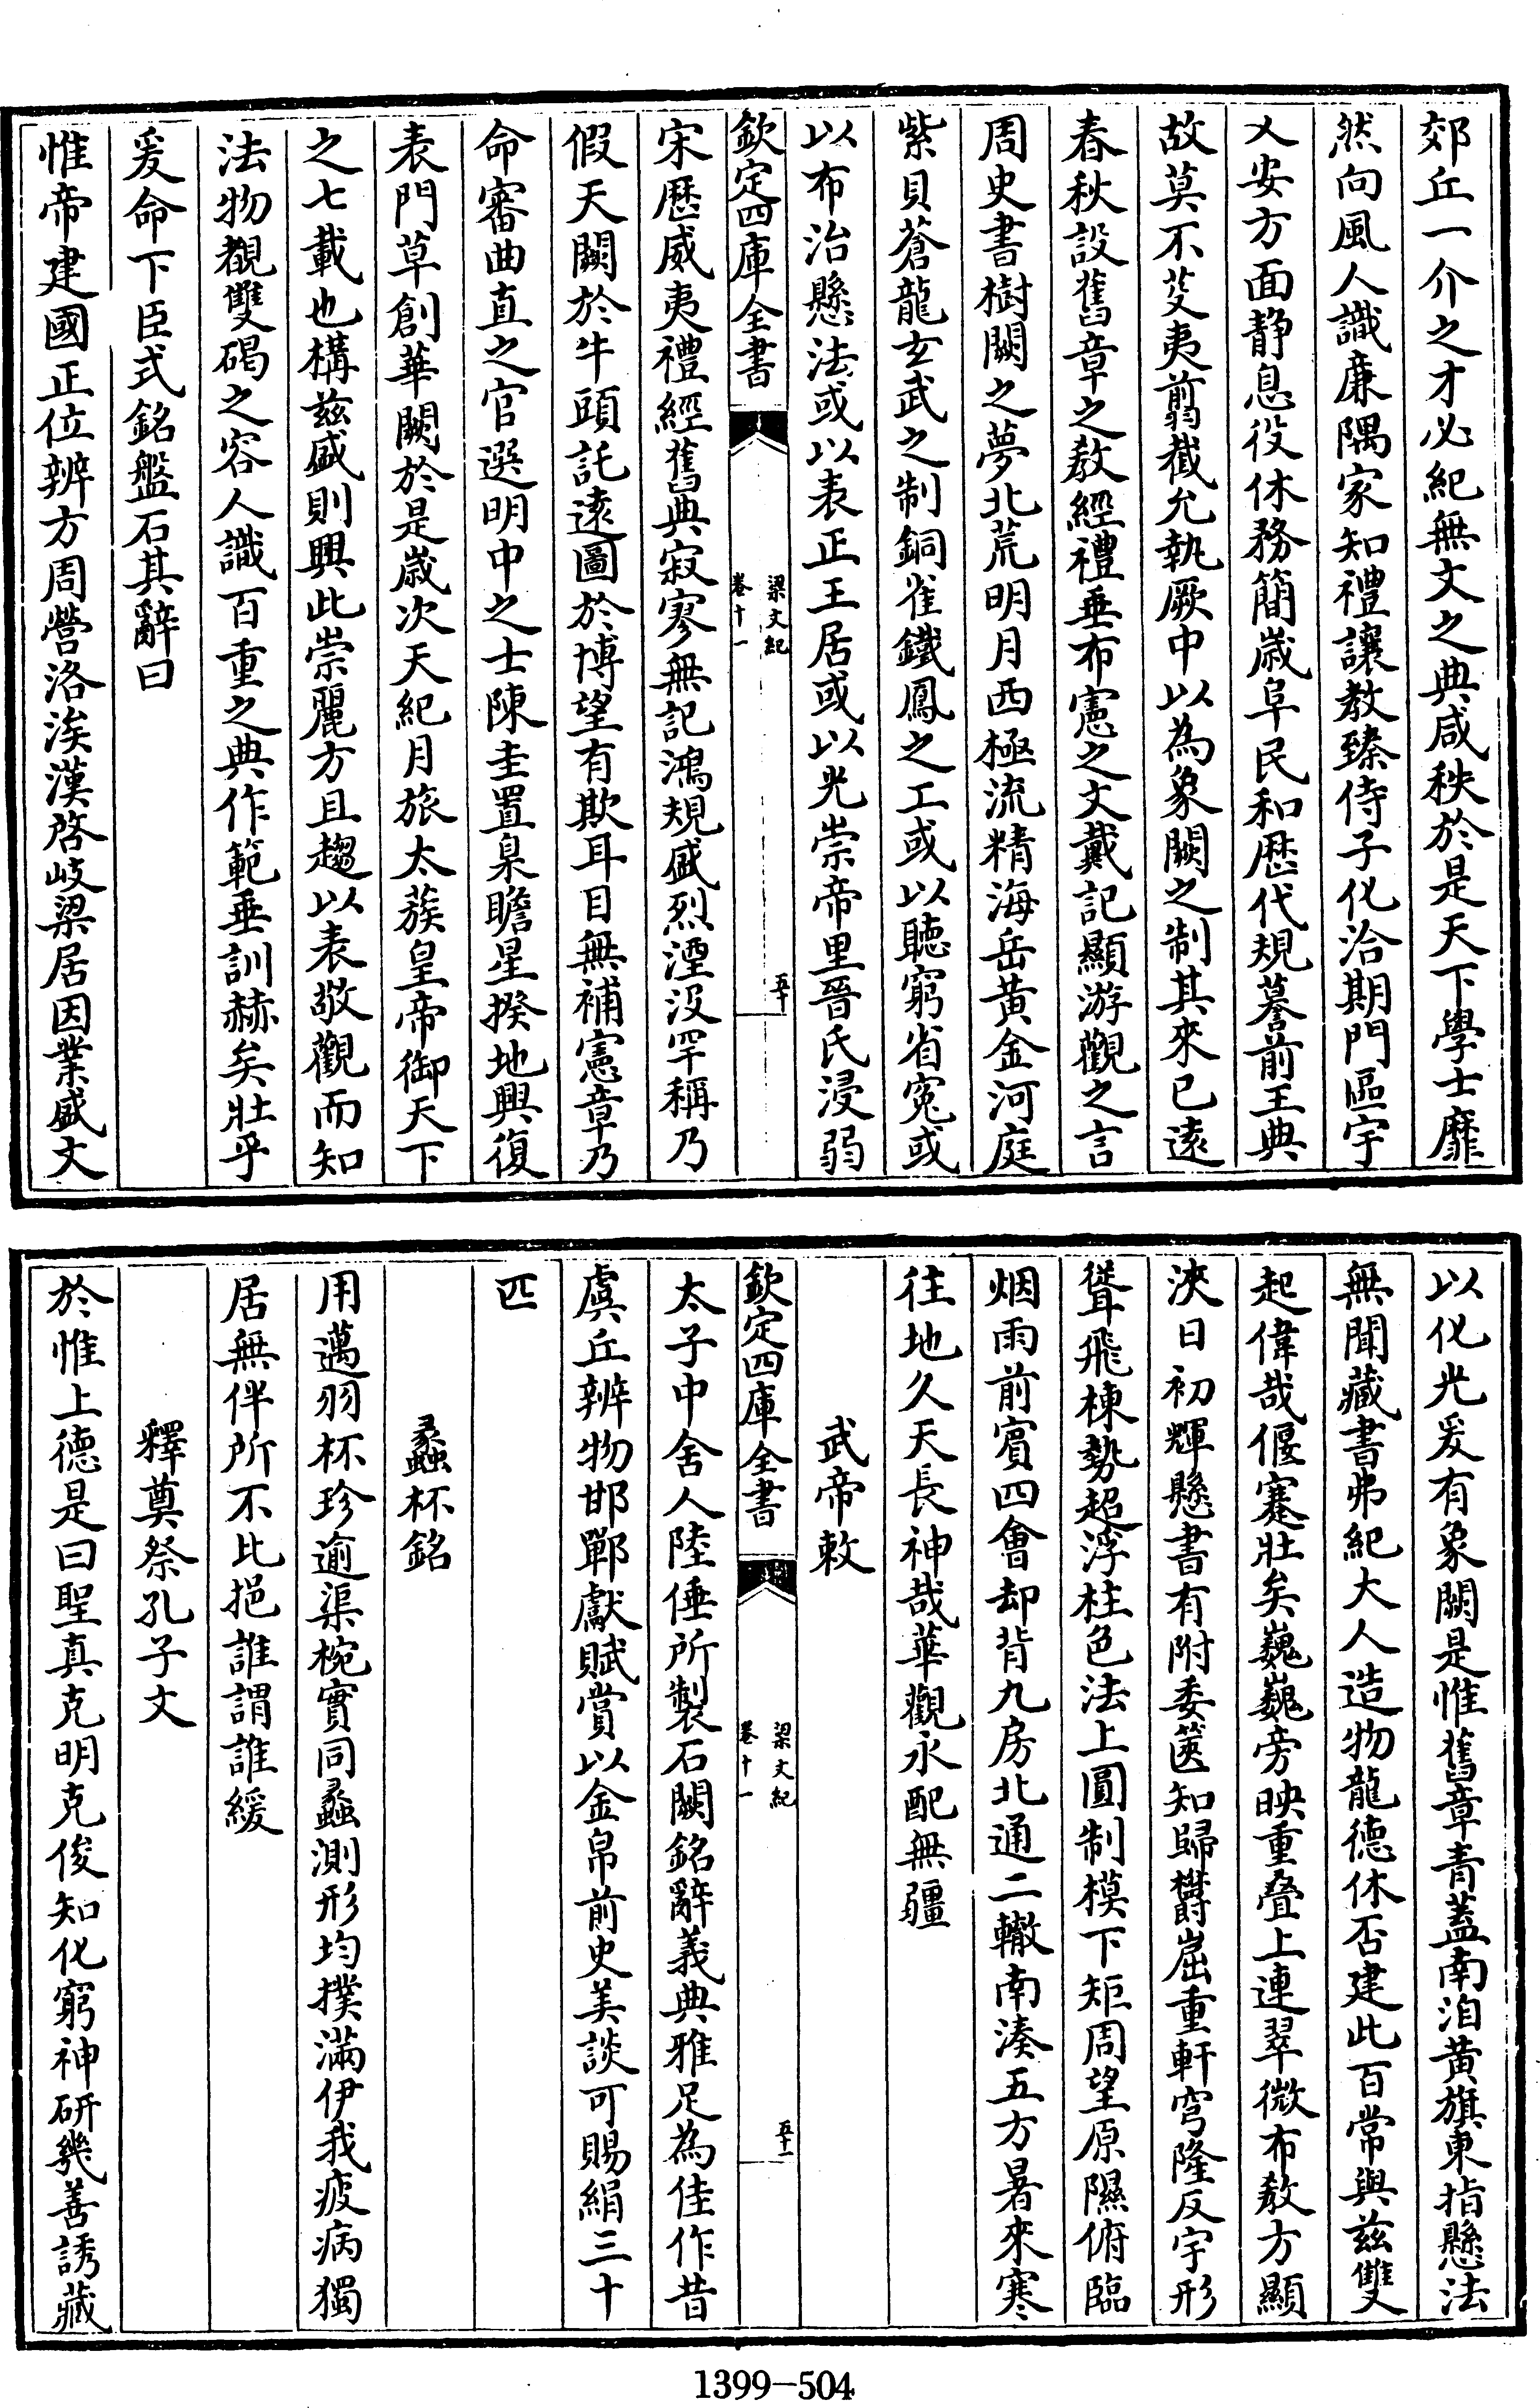 郊丘一介之才必紀無文之典咸秩於是天下學士靡
然向風人識廉隅家知禮讓教臻侍子化洽期門區宇
乂安方面静息役休務簡嵗阜民和歴代規謩前王典
故莫不芟夷翦截允執厥中以為象闕之制其來已遠
春秋設舊章之教經禮垂布憲之文戴記顯游觀之言
周史書樹闕之夢北荒明月西極流精海岳黄金河庭
紫貝蒼龍玄武之制銅雀鐵鳳之工或以聴窮省寃或
以布治懸法或以表正王居或以光崇帝里晉氏浸弱
欽定四庫全書
梁文紀
卷十一
五十
宋歴威夷禮經舊典寂寥無記鴻規盛烈湮没罕稱乃
假天闕於牛頭託逺圖於博望有欺耳目無補憲章乃
命審曲直之官選明中之士陳圭置臬瞻星揆地興復
表門草創華闕於是嵗次天紀月旅太蔟皇帝御天下
之七載也構兹盛則興此崇麗方且趨以表敬觀而知
法物覩雙碣之容人識百重之典作範垂訓赫矣壯乎
爰命下臣式銘盤石其辭曰
惟帝建國正位辨方周營洛涘漢啓岐梁居因業盛文
以化光爰有象闕是惟舊章青蓋南洎黄旗東指懸法
無聞藏書弗紀大人造物龍德休否建此百常與兹雙
起偉哉偃蹇壯矣巍巍旁映重疊上連翠微布教方顯
浹日初輝懸書有附委篋知歸欝崫重軒穹隆反宇形
聳飛棟勢超浮柱色法上圓制模下矩周望原隰俯臨
烟雨前賔四會却背九房北通二轍南湊五方暑來寒
往地久天長神哉華觀永配無疆
武帝敕
欽定四庫全書
梁文紀
卷十一
五十一
太子中舍人陸倕所製石闕銘辭義典雅足為佳作昔
虞丘辨物邯鄲獻賦賞以金帛前史美談可賜絹三十
匹
蠡杯銘
用邁羽杯珍逾渠椀實同蠡測形均撲滿伊我疲病獨
居無伴所不比挹誰謂誰緩
釋奠祭孔子文
於惟上德是曰聖真克明克俊知化窮神研幾善誘藏
1399-504